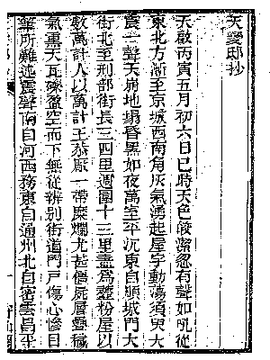 天變邸抄
天啟丙寅五月初六日巳時天色皎潔忽有聲如吼從
東北方漸至京城西南角灰氣湧起屋宇動蕩須臾大
震一聲天崩地塌昏黑如夜萬室平沉東自順城門大
街北至刑部街長三四里週圍十三里盡爲虀粉屋以
數萬計人以萬計王恭廠一帶糜爛尤甚僵屍層疊穢
氣熏天瓦礫盈空而下無從辨別街道門戶傷心慘目
筆所難述震聲南自河西務東自通州北自密雲昌平